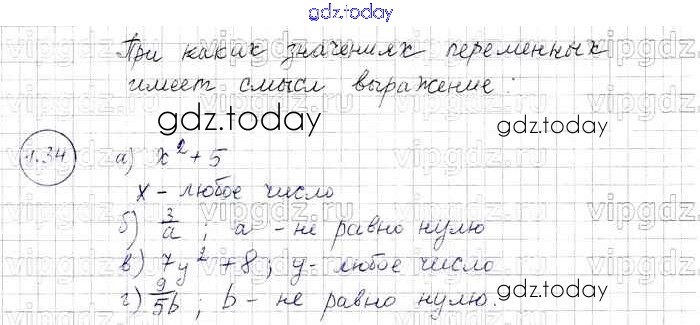 gdz.today
При каких значениях переменных
имеет смысл выражение:
gdz.today
gdz.today
1.34
а) x² + 5
x - любое число
б) 3/a ; a - не равно нулю
в) 7y² + 8 ; y - любое число
г) 9/5b ; b - не равно нулю.
gdz.today
gdz.today